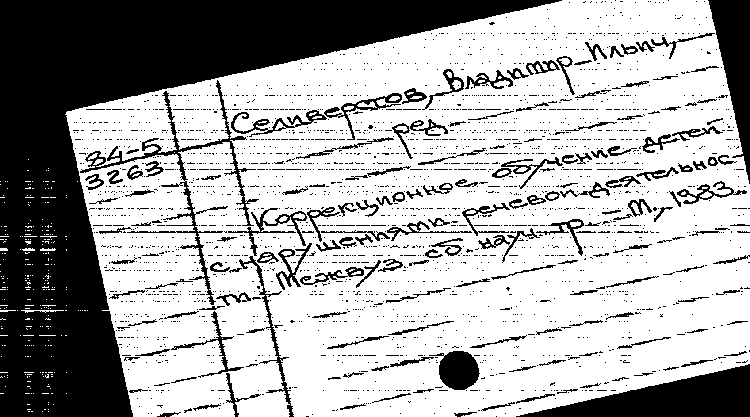 84-5
3263
Селиверстов, Владимир Ильич,
ред.
Коррекционное обучение детей
с нарушениями речевой деятельнос-
ти. Межвуз. сб. науч. тр. – М., 1983.